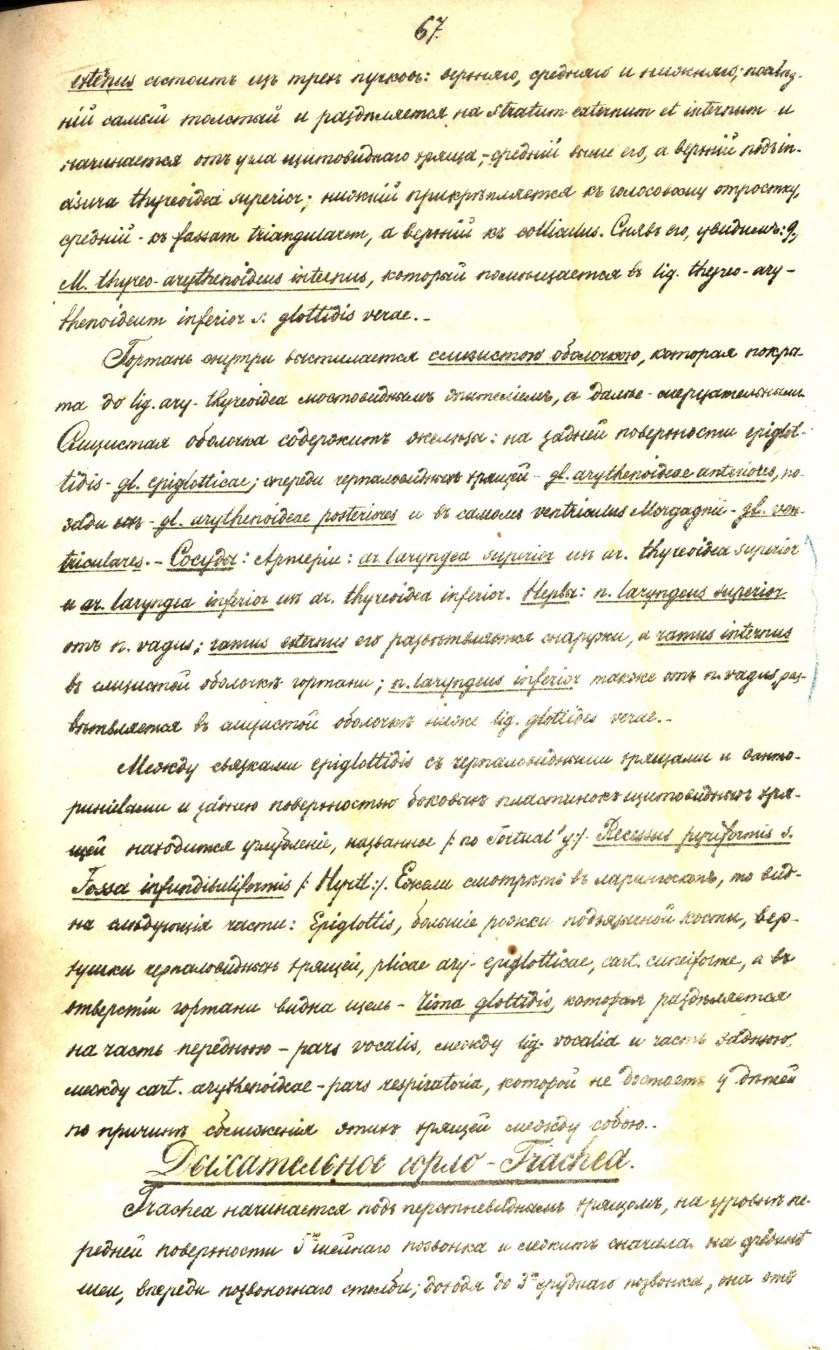 67.
externus состоитъ изъ трехъ пучковъ: верхняго, средняго и нижняго; послѣд-
ній самый толстый и раздѣляется на stratum externum et internum и
начинается отъ угла щитовиднаго хряща, - средній выше его, а верхній подъ in-
cisura thyreoidea superior; нижній прикрѣпляется къ голосовому отростку,
средній - къ fossam triangularem, а верхній къ colliculus. Снявъ его, увидимъ: 9,
M. thyreo-arythenoideus internus, который помѣщается въ lig. thyreo-ary-
thenoideum inferior s. glottidis verae. -
Гортань внутри выстилается слизистою оболочкою, которая покры-
та до lig. ary-thyreoidea мостовиднымъ эпителіемъ, а далѣе - мерцательнымъ.
Слизистая оболочка содержитъ железы: на задней поверхности epiglot-
tidis - gl. epiglotticae; спереди черпаловидныхъ хрящей - gl. arythenoideae anteriores, по-
зади ихъ - gl. arythenoideae posteriores и въ самомъ ventriculus Morgagnii - gl. ven-
triculares. - Сосуды: Артеріи: ar. laryngea superior изъ ar. thyreoidea superior
и ar. laryngea inferior изъ ar. thyreoidea inferior. Нервы: n. laryngeus superior
отъ n. vagus; ramus externus его развѣтвляется снаружи, а ramus internus
въ слизистой оболочкѣ гортани; n. laryngeus inferior также отъ n. vagus, раз-
вѣтвляется въ слизистой оболочкѣ ниже lig. glottides verae. -
Между связками epiglottidis съ черпаловидными хрящами и Санто-
риніевыми и заднею поверхностью боковыхъ пластинокъ щитовидныхъ хря-
щей находится углубленіе, названное /: по Tortual'у :/ Recessus pyriformis s.
Fossa infundibuliformis /: Hyrtl :/. Ежели смотрѣть въ ларингоскопъ, то вид-
на слѣдующія части: Epiglottis, большіе рожки подъязычной кости, вер-
хушки черпаловидныхъ хрящей, plicae ary-epiglotticae, cart. cuneiforme, а въ
отверстіи гортани видна щель - rima glottidis, которая раздѣляется
на часть переднюю - pars vocalis, между lig. vocalia и часть заднюю,
между cart. arythenoideae - pars respiratoria, которой не достаетъ у дѣтей
по причинѣ сближенія этихъ хрящей между собою. -
Дыхательное горло - Trachea.
Trachea начинается подъ перстневиднымъ хрящомъ, на уровнѣ пе-
редней поверхности 5го шейнаго позвонка и лежитъ сначала на срединѣ
шеи, впереди позвоночнаго столба; доходя до 3го груднаго позвонка, она отъ